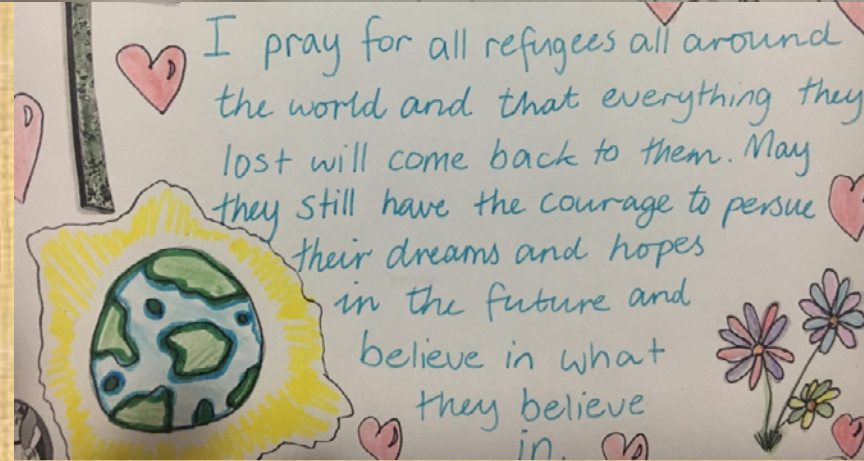 I pray for all refugees all around
the world and that everything they
lost will come back to them. May
they still have the courage to persue
their dreams and hopes
in the future and
believe in what
they believe
in.